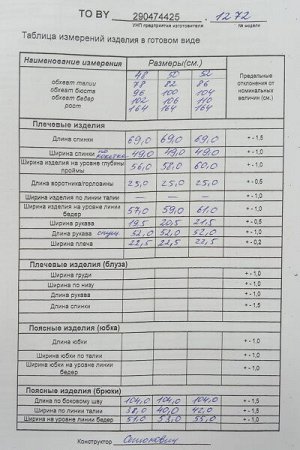 TO BY 290474425 . 1272
УНП предприятия изготовителя № модели
Таблица измерений изделия в готовом виде
Наименование измерения Размеры(см.) Предельные отклонения от номинальных величин (см.)
48 50 52
обхват талии 78 82 86
обхват бюста 96 100 104
обхват бедер 102 106 110
рост 164 164 164
Плечевые изделия
Длина спинки 69,0 69,0 69,0 + - 1,5
Ширина спинки по кокетке 49,0 49,0 49,0 + - 1,0
Ширина изделия на уровне глубины проймы 56,0 58,0 60,0 + - 1,0
Длина воротника/горловины 25,0 25,0 25,0 + - 0,5
Ширина изделия по линии талии — — — + - 1,0
Ширина изделия на уровне линии бедер 57,0 59,0 61,0 + - 1,0
Ширина рукава 19,5 20,5 21,5 + - 0,5
Длина рукава спущ 52,0 52,0 52,0 + - 1,0
Ширина плеча 22,5 22,5 22,5 + - 0,2
Плечевые изделия (блуза)
Ширина груди + - 1,0
Ширина по низу + - 1,0
Длина рукава + - 1,0
Длина спинки + - 1,5
Поясные изделия (юбка)
Длина юбки + - 1,0
Ширина юбки по талии + - 1,0
Ширина юбки на уровне линии бедер + - 1,0
Поясные изделия (брюки)
Длина по боковому шву 104,0 104,0 104,0 + - 1,5
Ширина по линии талии 38,0 40,0 42,0 + - 1,0
Ширина на уровне линии бедер 51,0 53,0 55,0 + - 1,0
Конструктор